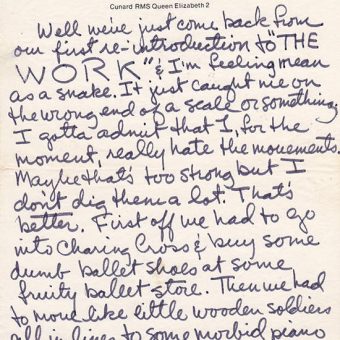 Cunard RMS Queen Elizabeth 2
Well we've just come back from
our first re-introduction to "THE
WORK" & I'm feeling mean
as a snake. It just caught me on
the wrong end of a scale or something;
I gotta admit that I, for the
moment, really hate the movements.
Maybe that's too strong but I
don't dig them a lot. That's
better. First off we had to go
into Charing Cross & buy some
dumb ballet shoes at some
fruity ballet store. Then we had
to move like little wooden soldiers
all in lines to some morbid piano